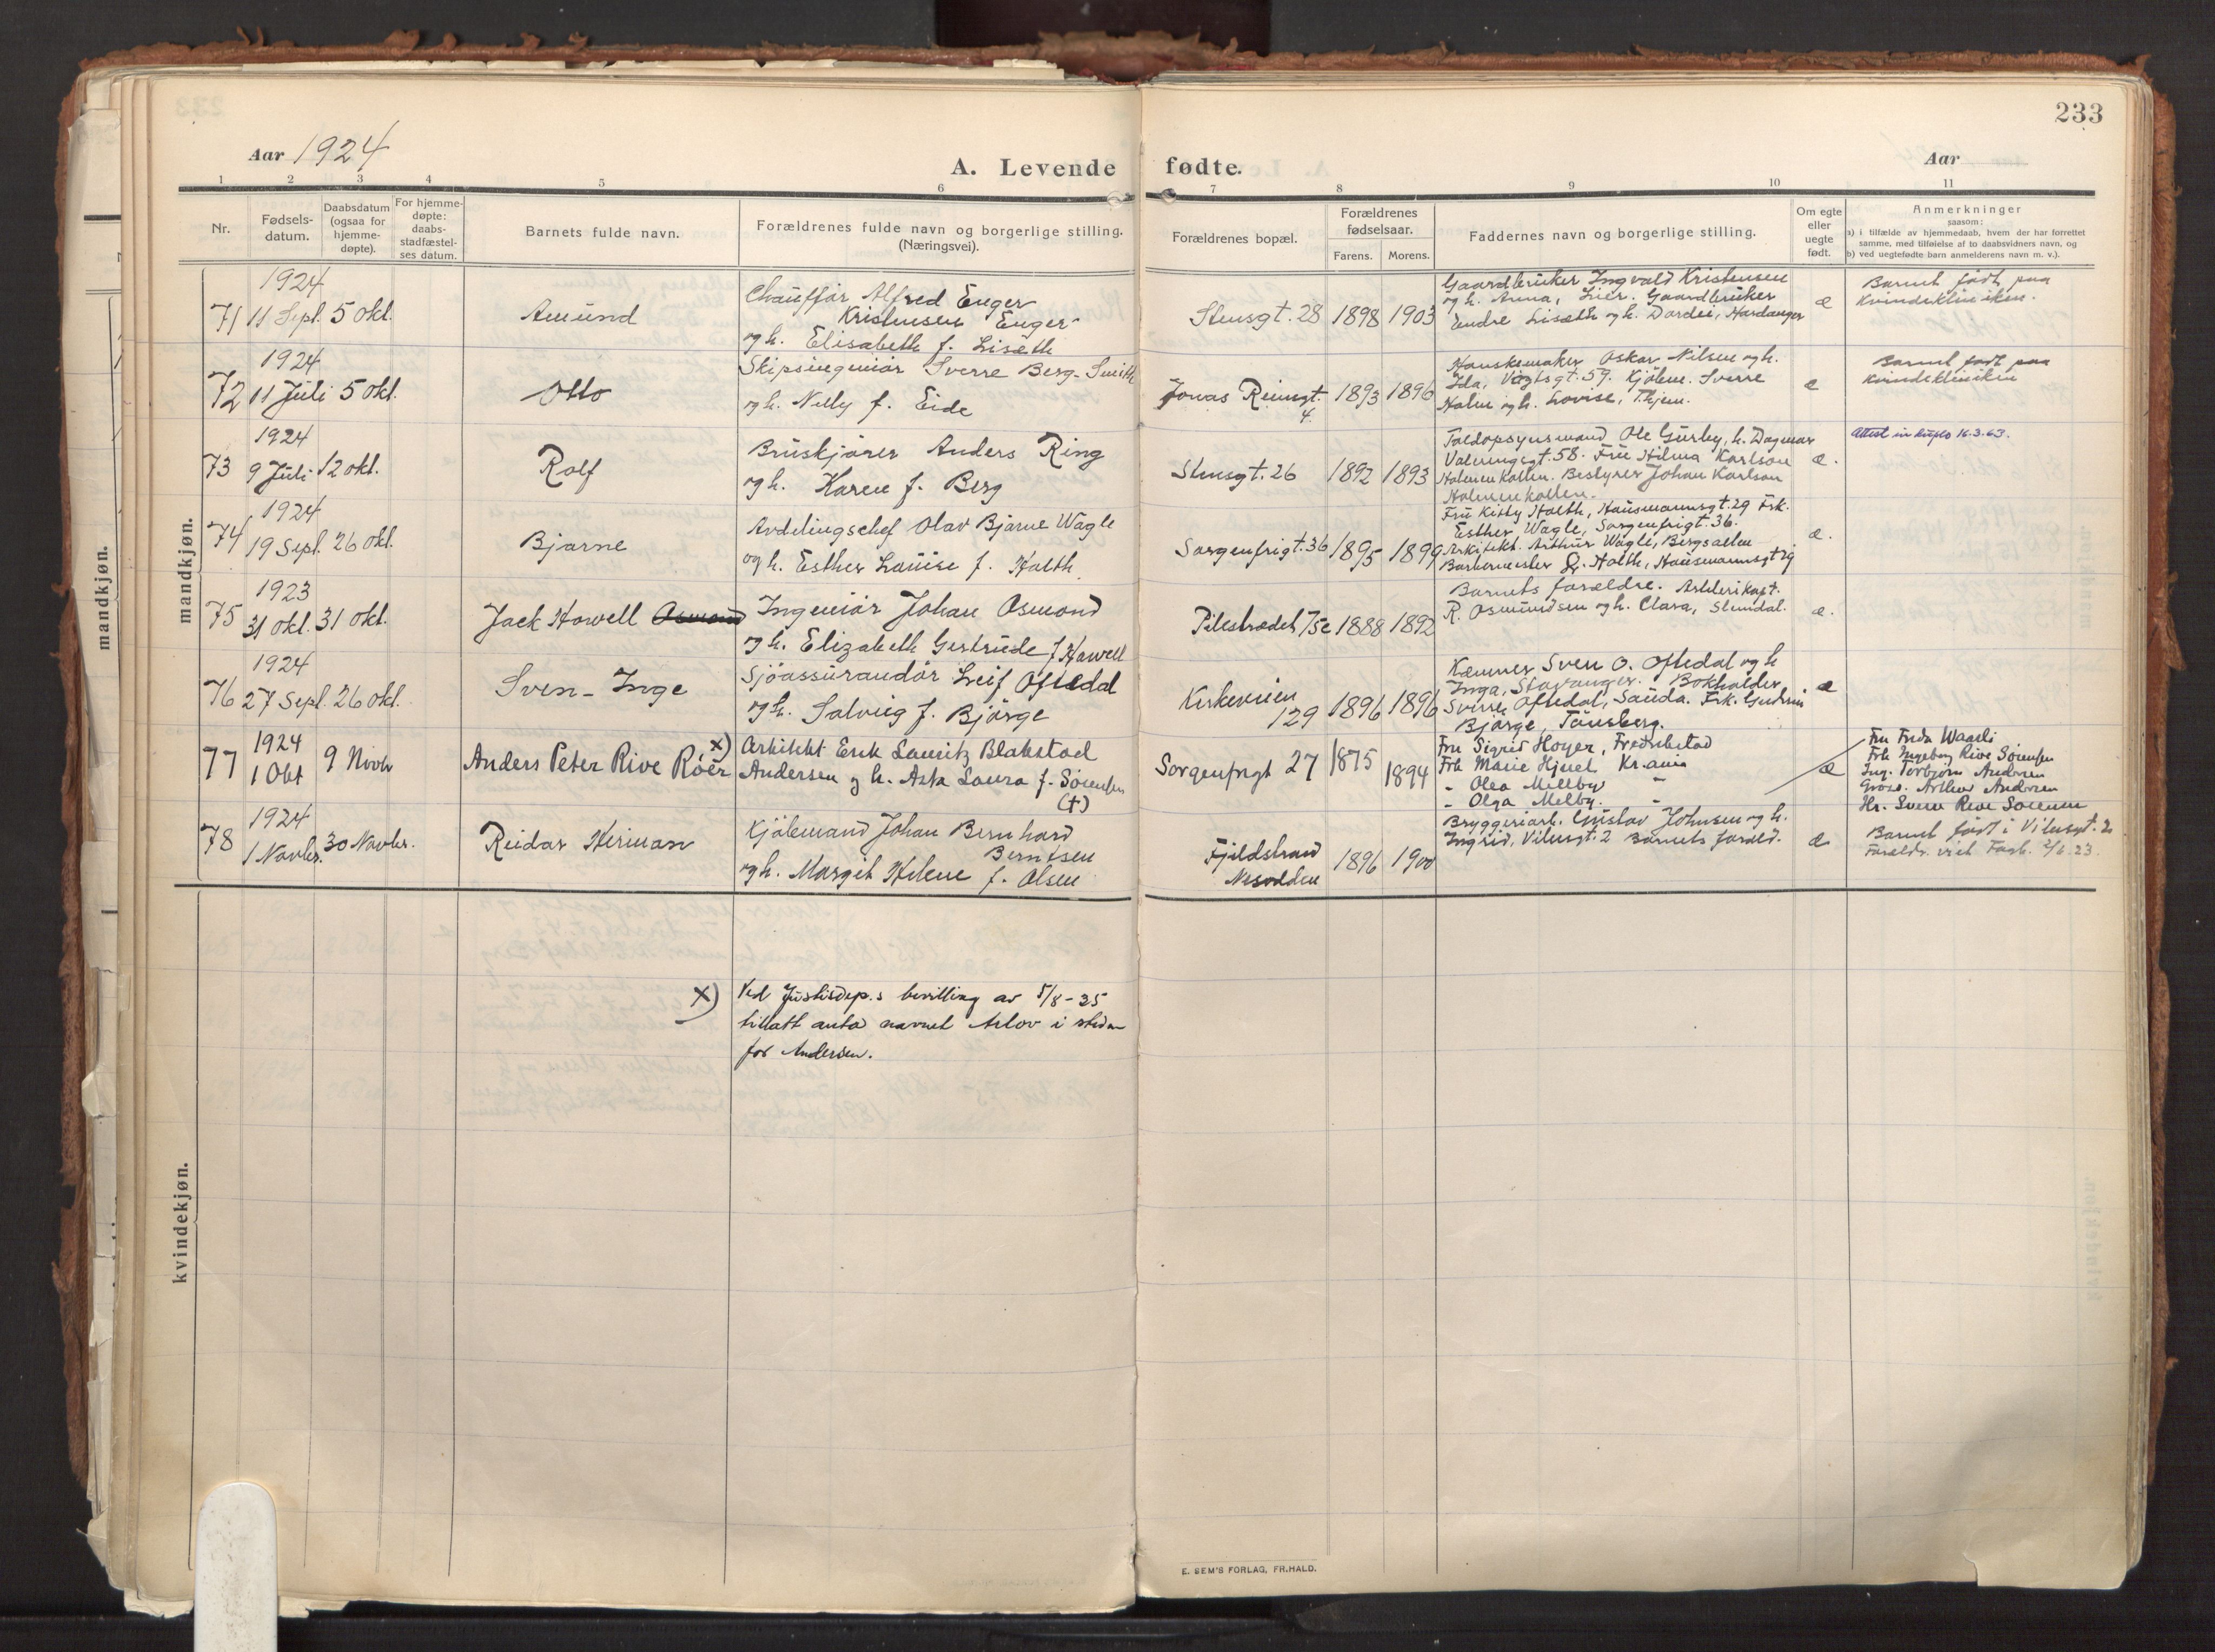 233
Aar 1924
A. Levende fødte.
Aar
1 2 3 4 5 6 7 8 9 10 11
Nr.
Fødsels-
datum.
Daabsdatum
(ogsaa for
hjemme-
døpte).
For hjemme-
døpte:
daabs-
stadfæstel-
ses datum.
Barnets fulde navn.
Forældrenes fulde navn og borgerlige stilling.
(Næringsvei).
Forældrenes bopæl.
Forældrenes
fødselsaar.
Farens. Morens.
Faddernes navn og borgerlige stilling.
Om egte
eller
uegte
født.
Anmerkninger
saasom:
a) i tilfælde av hjemmedaab, hvem der har forrettet
samme, med tilføielse af to daabsvidners navn, og
b) ved uegtefødte barn anmelderens navn m. v.).
mandkjøn.
mandkjøn.
1924
71 11 Sept. 5 okt.
Amund
Chauffør Alfred Enger
Kristensen Enger
og h. Elisabeth f. Lisæth
Stensgt. 28 1898 1903
Gaardbruker Ingvald Kristensen
og h. Anna, Lier. Gaardbruker
Endre Lisæth og h. Dordei, Hardanger
æ
Barnet født paa
Kvindeklinikken.
1924
72 11 Juli 5 okt.
Otto
Skipsingeniør Sverre Berg-Smith
og h. Nelly f. Eide
Jonas Reinsgt.
4. 1893 1896
Hanskemaker Oskar Nilsen og h.
Ida, Vogtsgt. 59. Kjøbm. Sverre
Holm og h. Lovise, Thjem.
æ
Barnet født paa
Kvindeklinikken
1924
73 9 Juli 12 okt.
Rolf
Bruskjører Anders Ring
og h. Karen f. Berg
Stensgt. 26 1892 1893
Toldopsynsmand Ole Gurby, h. Dagmar
Valeringsgt. 58. Fru Hilma Karlson
Holmenkollen. Bestyrer Johan Karlson
Holmenkollen.
æ.
Attest in duplo 16.3.63.
1924
74 19 Sept. 26 okt.
Bjarne
Avdelingschef Olav Bjarne Wagle
og h. Esther Louise f. Holth
Sorgenfrigt. 36 1895 1899
Fru Kitty Holth, Hausmannsgt. 29 Frk.
Esther Wagle, Sorgenfrigt. 36.
Arkitekt Arthur Wagle, Bergsalleen
Barbermester Holth, Hausmannsgt 29
æ.
1923
75 31 okt. 31 okt.
Jack Howell Osmond
Ingeniør Johan Osmond
og h. Elizabeth Gertrude f. Howell
Pilestrædet 75c 1888 1892
Barnets forældre. Artillerikapt.
R. Osmundsen og h. Clara, Slemdal.
æ.
1924
76 27 Sept. 26 okt.
Sven-Inge
Sjøassurandør Leif Oftedal
og h. Solveig f. Bjørge
Kirkeveien
129 1896 1896
Kæmner Sven O. Oftedal og h
Inga, Stavanger. Bokholder
Sverre Oftedal, Sauda. Frk. Gudrun
Bjørge, Tønsberg.
æ
1924
77 1 Okt 9 Novbr
Anders Peter Rive Röer x)
Arkitekt Erik Lauritz Blakstad
Andersen og h. Asta Laura f. Sørensen
(†)
Sorgenfrigt 27 1875 1894
Fru Sigrid Hoyer, Fredrikstad
Frk Marie Hjuel, Kr.ania
- Olea Mellbye "
- Olga Melby. "
æ
Fru Frida Waarli
Frk Ingeborg Rive Sørensen
Ing. Torbjørn Andersen
Gross. Arthur Andersen
Hr. Svein Rive Sørensen
1924
78 1 Novbr. 30 Novbr.
Reidar Herman
Kjølemand Johan Bernhard
Berntsen
og h. Margit Helene f. Olsen
Fjeldstrand
Nesodden 1896 1900
Bryggeriarb. Gustav Johnsen og h.
Ingrid, Vilensgt. 2 Barnets foræld.
æ
Barnet født i Vilensgt. 2
Forældr. viet Fagerb. 2/6. 23.
kvindekjøn.
x) Ved Justisdep.s bevilling av 5/8-25
tillatt anta navnet Arlov i steden
for Andersen.
E. SEM'S FORLAG, FR.HALD.